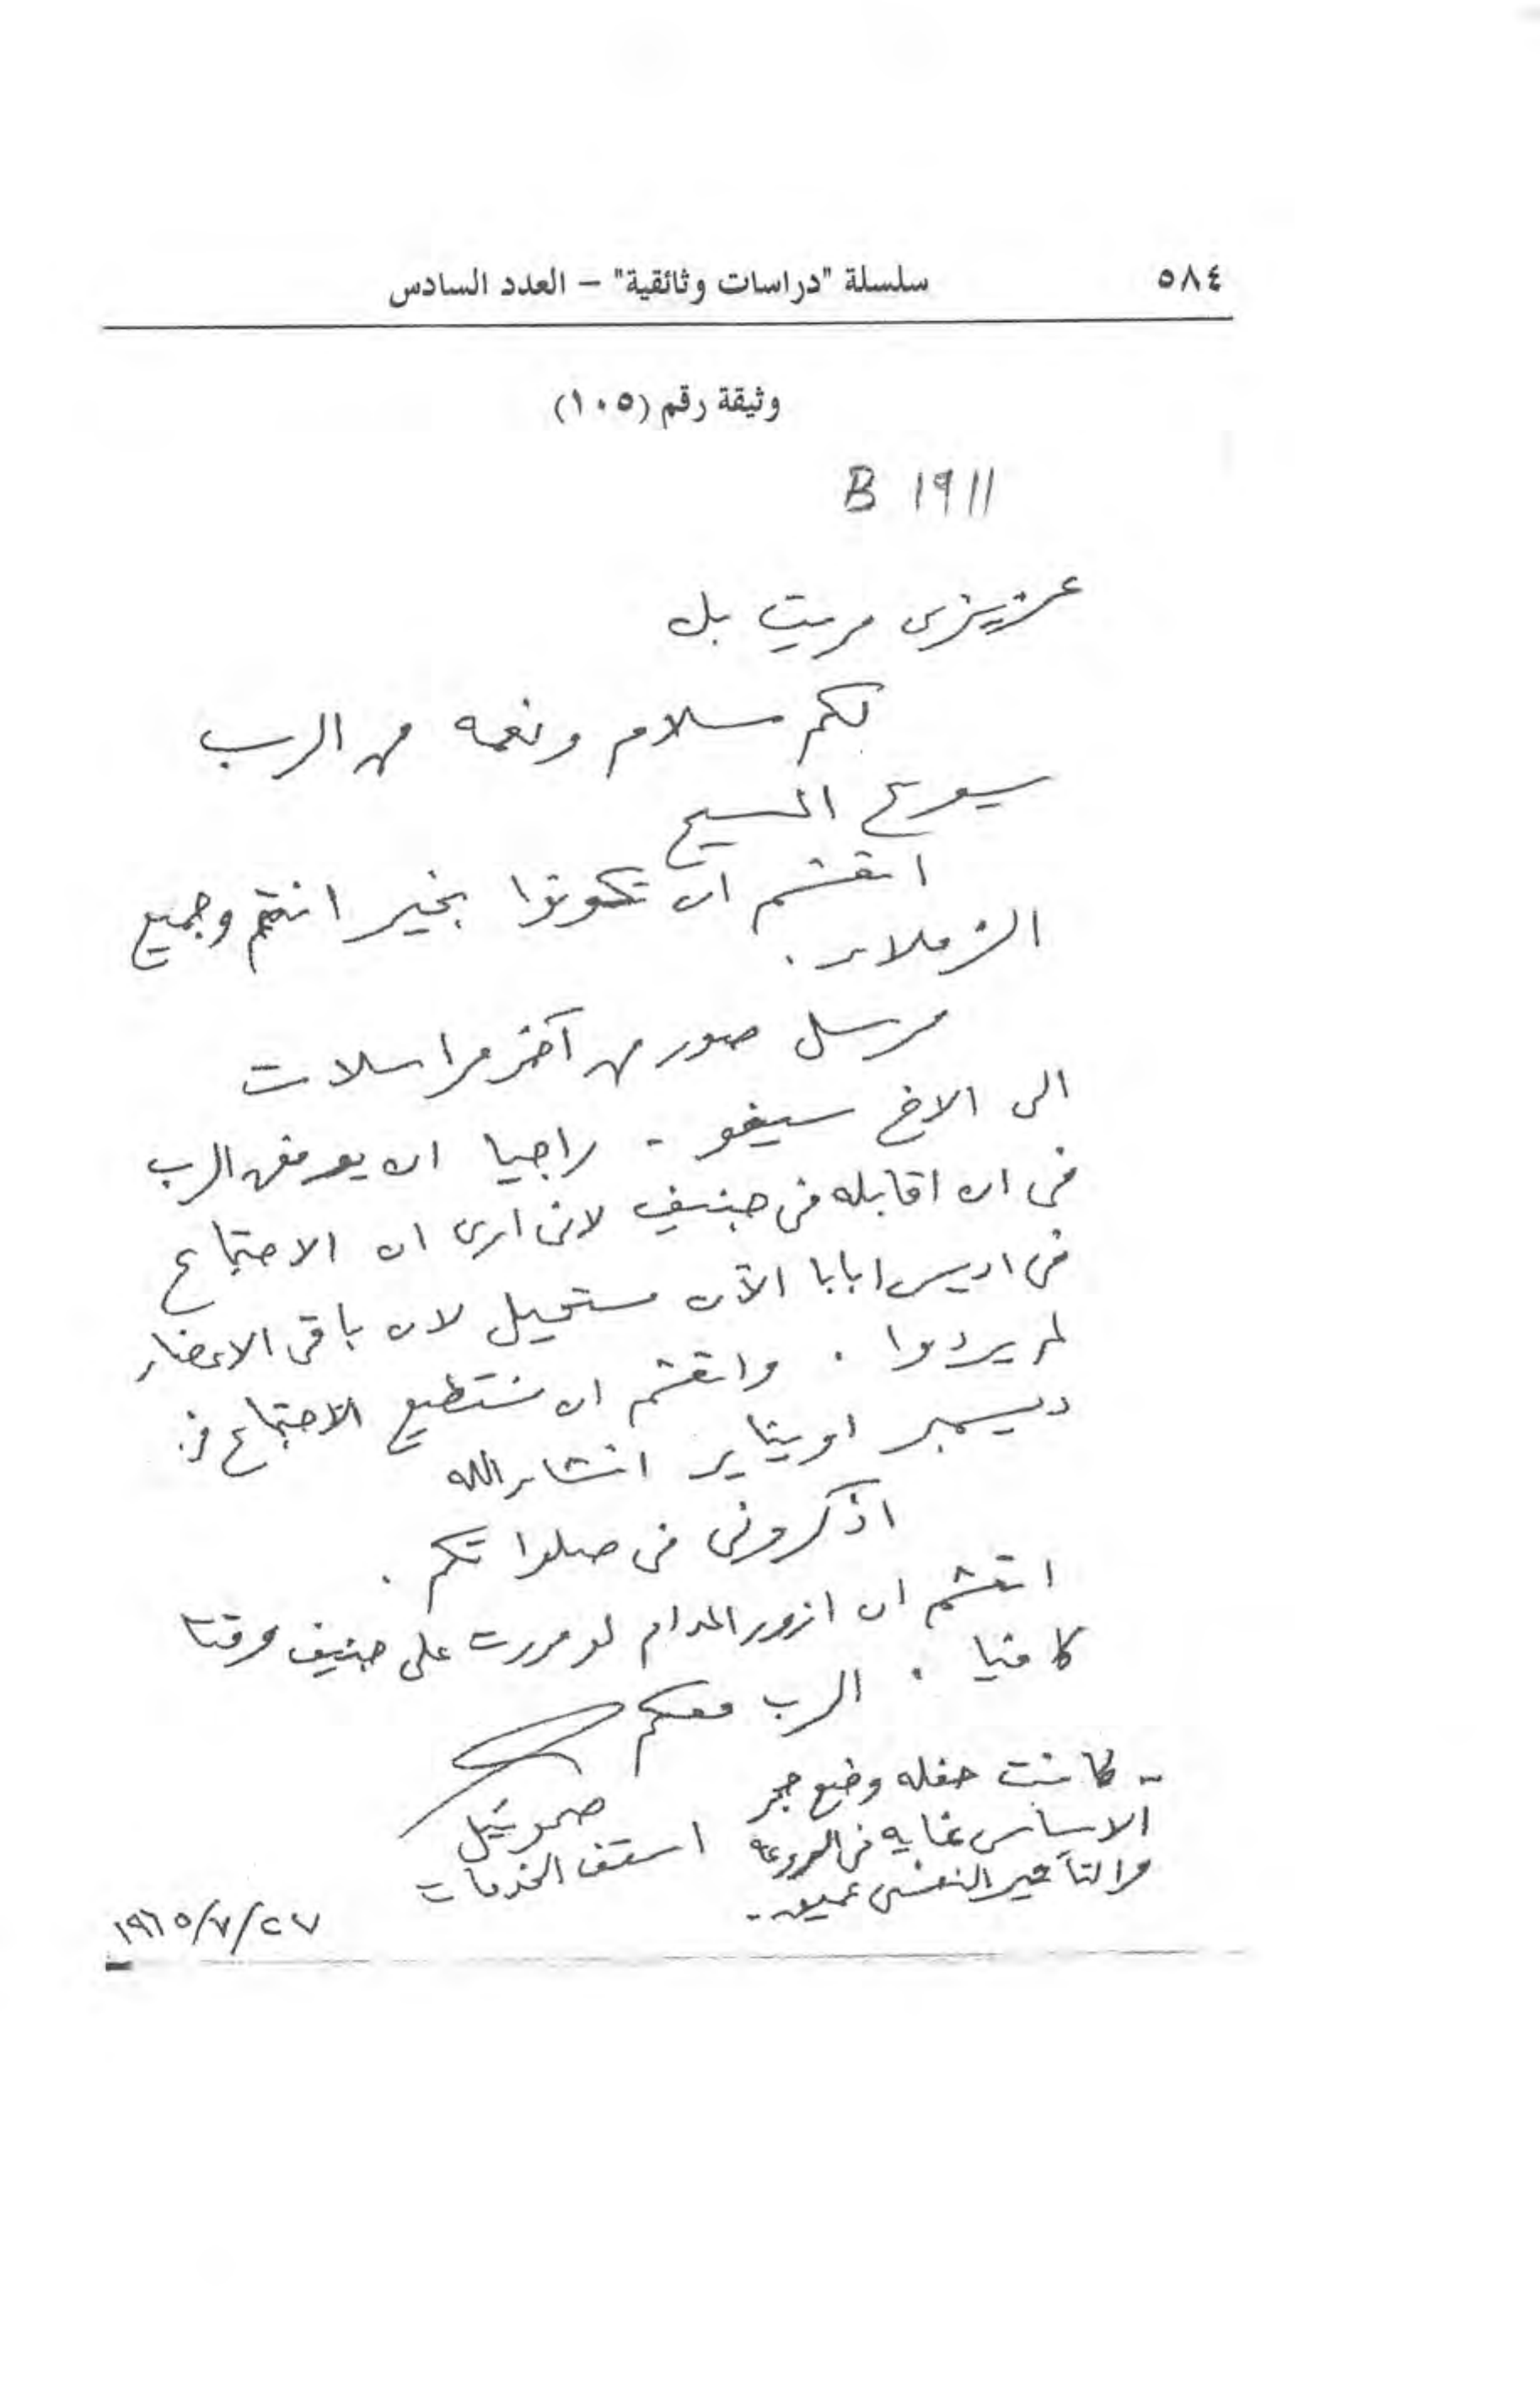 ٥٨٤
سلسلة "دراسات وثائقية" – العدد السادس
وثيقة رقم (١٠٥)
B 1911
عزيزى مريت بك
لكم سلام ونعمه من الرب
يسوع المسيح
اتعشم ان تكونوا بخير انتم وجميع
الزملاء .
مرسل صور من آخر مراسلات
الى الاخ سيفو - راجيا ان يوفقنى الرب
فى ان اقابله فى جنيف لانى ارى ان الاجتماع
فى اديس ابابا الآن مستحيل لان باقى الاعضاء
لم يردوا . واتعشم ان نستطيع الاجتماع فى
ديسمبر او يناير انشاء الله
اذكرونى فى صلواتكم .
اتعشم ان ازور المدام لو مررت على جنيف وقتا
كافيا . الرب معكم
صموئيل
اسقف الخدمات
- كانت حفله وضع حجر
الاساس غايه فى الروعه
والتأثير النفسى عميق -
١٩٦٥/٧/٢٧